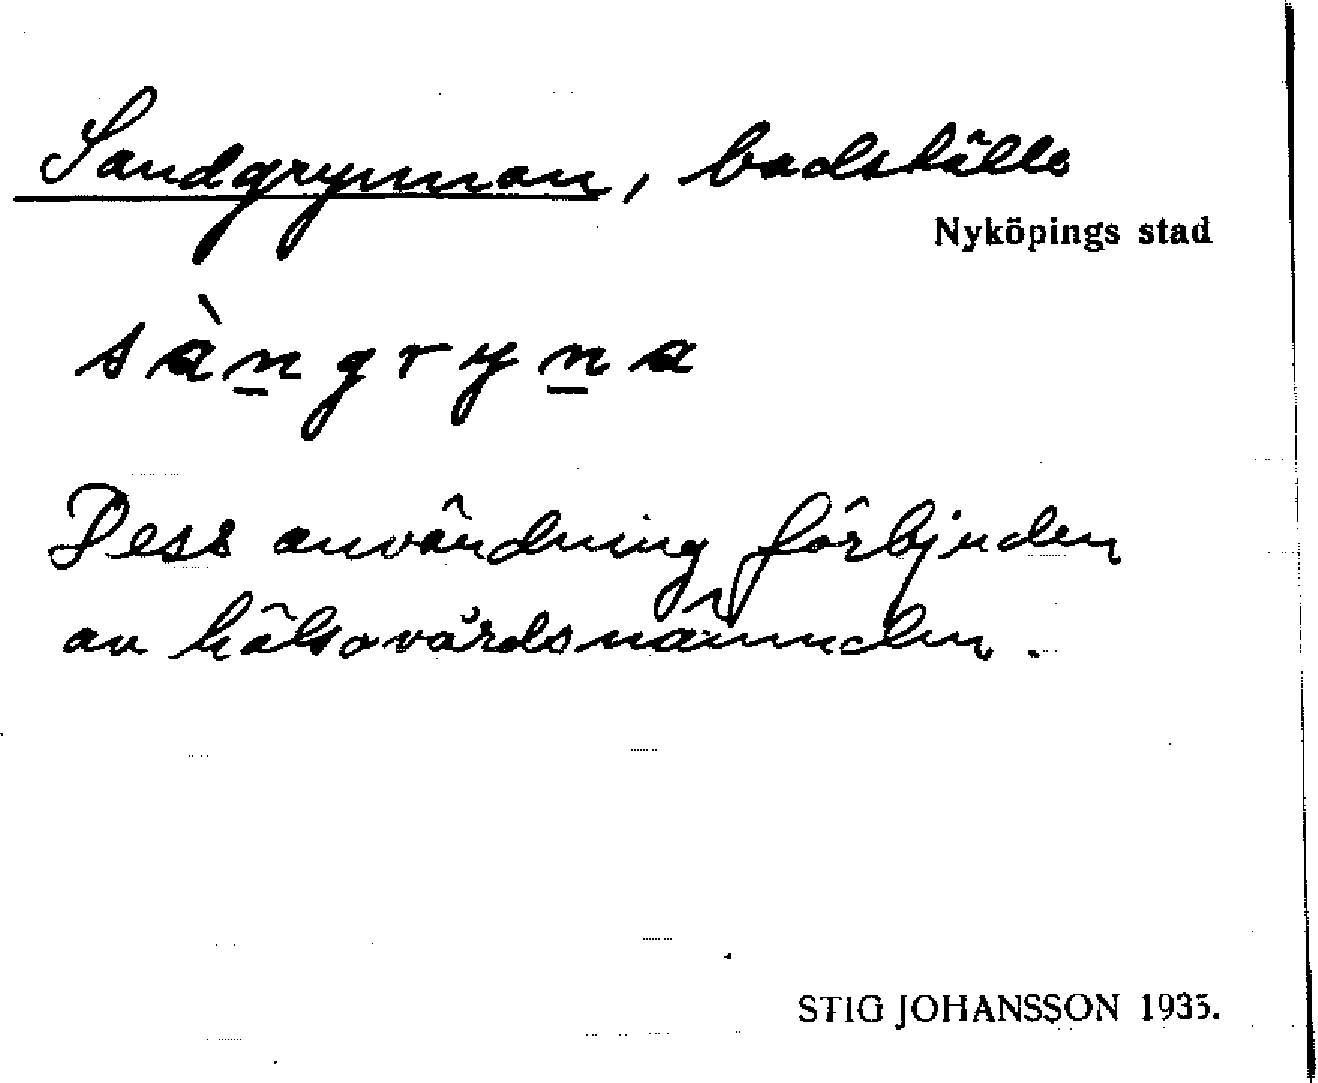 Sandgrynnan, badställe
Nyköpings stad
sàngryna
Dess användning förbjuden
av hälsovårdsnämnden.
STIG JOHANSSON 1935.